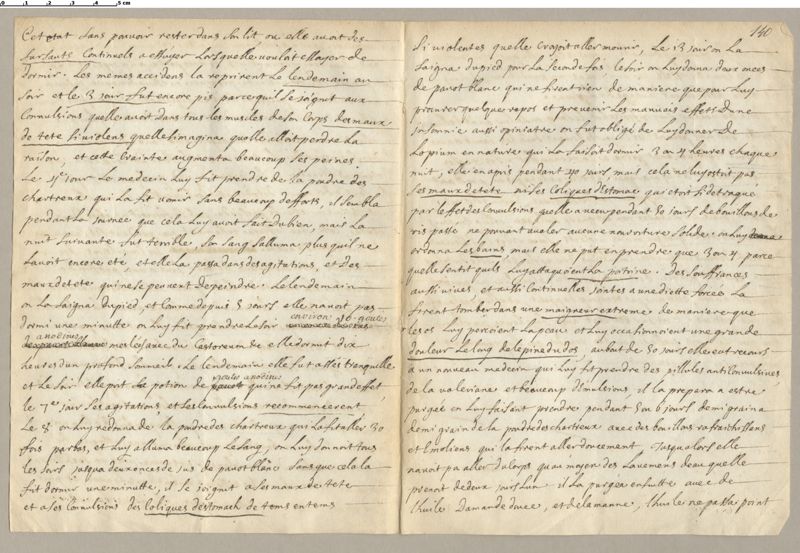 Cet etat sans pouvoir rester dans son lit ou elle avoit des
sursauts Continuels a essuyer Lorsquelle vouloit essayer de
dormir. Les memes accidens la reprirent Le lendemain au
soir et le 3 jour fut encore pis parce quil se joignit aux
Convulsions quelle avoit dans tous les muscles de son Corps des maux
de tete si violens quelle simagina quelle alloit perdre La
raison, et cette Crainte augmenta beaucoup ses peines.
Le jour Le medecin Luy fit prendre de la poudre des
chartreux qui La fit vomir sans beaucoup defforts, il sembla
pendant La journée que cela Luy avoit fait du bien, mais La
nuit suivante fut terrible, son sang salluma plus quil ne
Lavoit encore eté et elle La passa dans des agitations, et Des
maux de tete qui ne se peuvent depeindre. Le lendemain
on La saigna du pied, et Comme depuis 8 jours elle navoit pas
dormi une minutte on Luy fit prendre Le soir environ 16 goute
danodines meslés avec du Castoreum elle dormit dix
heures dun profond sommeil. Le lendemain elle fut assés tranquille
et Le soir elle prit La potion de anodine qui ne fit pas grand effet
le 7e jour ses agitations et ses Convulsions recommencerent
Le 8 on Luy redonna de la poudre des chartreux qui La fit aller 30
fois par bas, et Luy alluma beaucoup Le sang, on Luy donnoit tous
les soirs jusqua deux onces de jus de pavot blanc sans que cela la
fit dormir une minutte, il se joignit a ses maux de tete
et a ses Convulsions des Coliques destomach de tems en tems
140
si violentes quelle Croyoit aller mourir, Le 13 jour on La
saigna du pied pour La seconde fois le soir on Luy donna deux onces
de pavot blanc qui ne firent rien de maniere que par Luy
procurer quelque repos et prevenir Les mauvais effets Dune
insomnie aussi opiniatre on fut obligé de Luy donner De
Lopium en nature qui La faisoit dormir 3 ou 4 heures chaque
nuit, elle en a pris pendant 40 jours mais cela ne luy ostoit pas
ses maux de tete ni ses Coliques destomac qui etoit si detraqué
par leffet des Convulsions quelle a vecu pendant 50 jours de bouillons de
ris passé ne pouvant avaler aucune nourriture solide. on Luy
ordonna Les bains, mais elle ne put en prendre que 3 ou 4 parce
quelle sentit quils Luy attaquoient La poitrine. Des souffrances
aussi vives, et aussi Continuelles jointes a une diette forcée La
firent tomber dans une maigreur extreme de maniere que
les os Luy percoient La peau et Luy occasionnoient une grande
douleur Le long de lepine du dos, au bout de 50 jours elle eut recours
a un nouveau medecin qui Luy fit prendre des pillules anti Convulsives
de la valeriane et beaucoup demulsions, il la prepara a estre
purgée en Luy faisant prendre pendant 5 ou 6 jours demi grain a
demi grain de La poudre des chartreux avec des bouillons rafraichissans
et Emolions qui La firent aller doucement. Jusqualors elle
navoit pu aller du Corps quau moyen des Lavemens deau quelle
prenoit de deux jours Lun. il La purgea ensuitte avec de
Lhuile Damande douce, et de la manne, Lhuile ne passa point